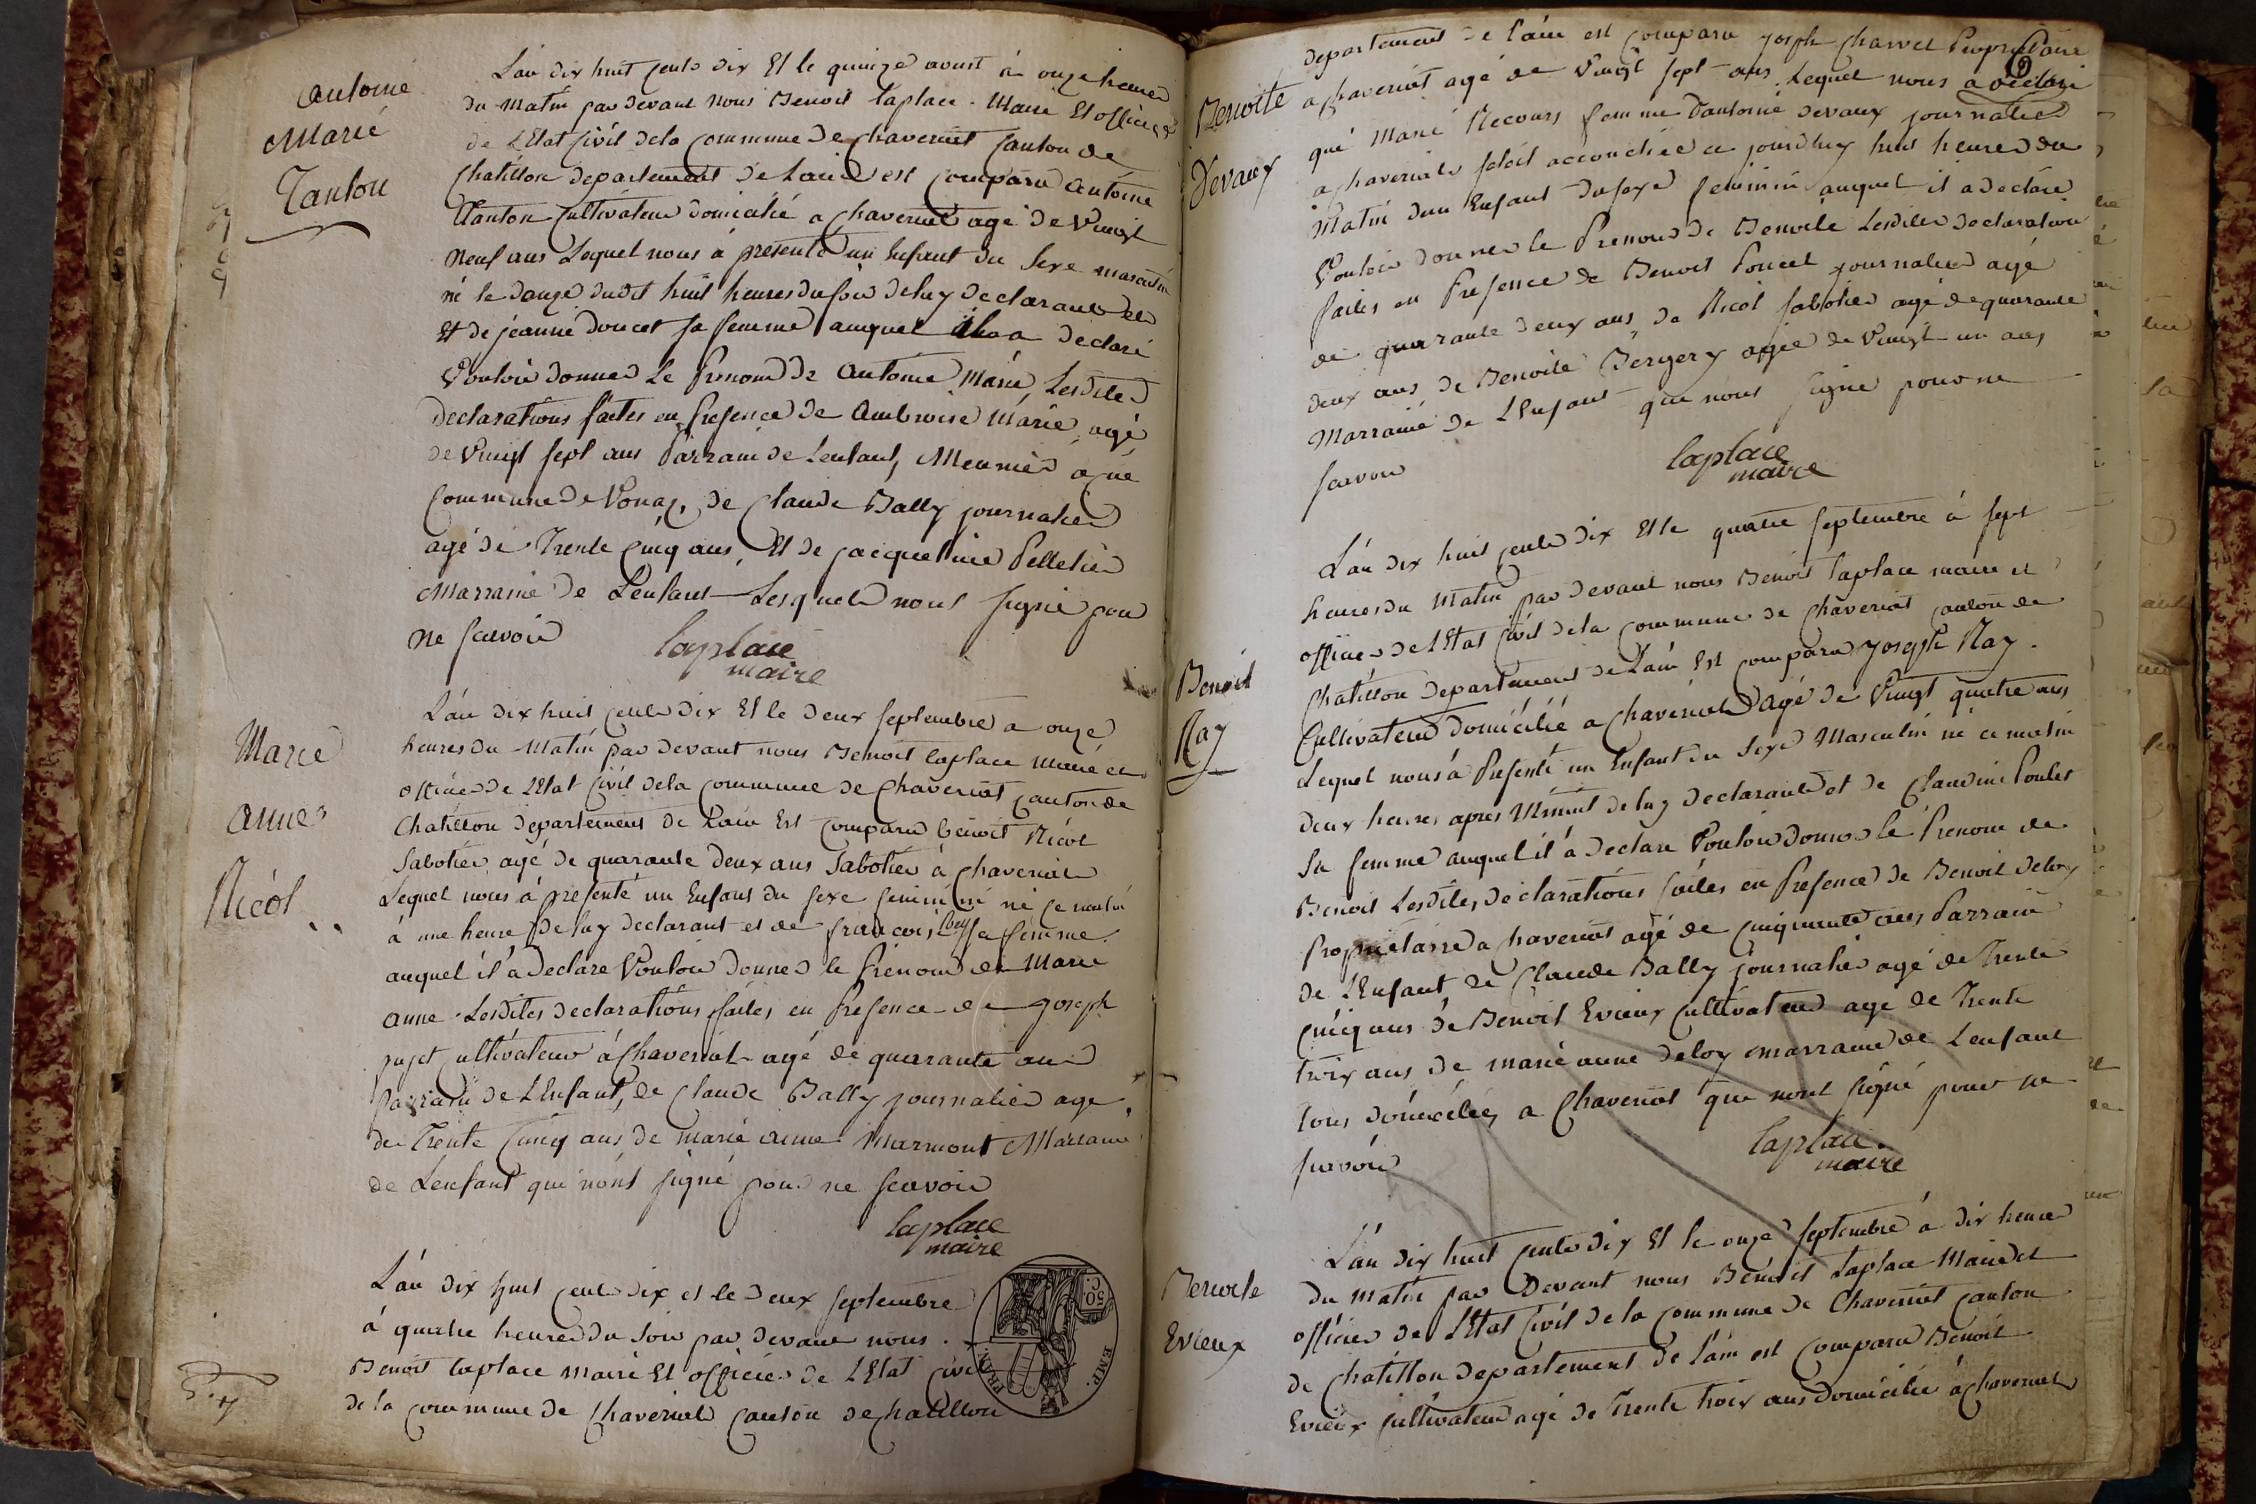 antoine
Marie
Tanton
L'an dix huit cents dix Et le quinze aoust à onze heures
du matin par devant nous Benoit laplace Maire Et officier
de L'Etat Civil dela Commune de Chaveriat Canton de
Chatillon departement de Lain est Comparu antoine
Tanton Cultivateur domicilié a Chaveriat agé de Vingt
neuf ans Lequel nous à presenté un Enfant du Sexe masculin
né le douze dudit huit heures du soir de luy declarant et
Et de jeanne doucet sa femme auquel il a declaré
Vouloir donner Le Prenom de antoine Marie, Lesdites
declarations faites en Presence de Ambroise Marie, agé
de Vingt sept ans Parrain de Lenfant, Meunier a
Commune de Vonaz, de Claude Bally journalier
agé de Trente Cinq ans, Et de jacqueline Pelletier
Marraine de Lenfant Lesquels nont signé pour
Ne scavoir
laplace
maire
Marie
anne
Nicol
L'an dix huit cents dix Et le deux septembre a onze
heures du Matin par devant nous Benoit laplace Maire et
officier de L'Etat Civil dela Commune de Chaveriat Canton de
Chatillon departement de Lain Est Comparu benoit Nicol
Sabotier agé de quarante deux ans Sabotier à Chaveriat
Lequel nous à presenté un Enfant du sexe feminin né ce matin
à une heure de luy declarant et de francoise sa femme
auquel il a declaré Vouloir donner le Prenom de Marie
anne Lesdites declarations faites en Presence de joseph
pujet cultivateur à Chaveriat agé de quarante ans
parrain de L'Enfant, de Claude Bally journalier agé
de Trente Cinq ans, de marie anne Marmont Marraine
de Lenfant qui nont signé pour ne scavoir
laplace
maire
L'an dix huit cents dix et le deux septembre
à quatre heures du soir par devant nous
Benoit laplace maire Et officier de L'Etat civil
de la commune de Chaveriat canton de chatillon
50 C.
EMP. FRAN.
Benoite
Devaux
departement de l'ain est comparu joseph Charvet Proprietaire
a chaveriat agé de Vingt sept ans Lequel nous a declaré
que Marie Recours femme d'antoine devaux journalier
a chaveriat setoit accouchée ce jourdhuy huit heures du
Matin dun Enfant du sexe feminin auquel il a declaré
Vouloir donner le Prenom de Benoite Lesdites declaration
faites en Presence de Benoit Poncet journalier agé
de quarante deux ans, de Nicol sabotier agé de quarante
deux ans, de Benoite Bergery agée de Vingt un ans
Marraine de L'Enfant que nont signé pour ne
scavoir
laplace
maire
Benoit
Ray
L'an dix huit cents dix Et le quatre septembre à sept
heures du Matin par devant nous Benoit laplace maire et
officier de L'Etat Civil dela commune de chaveriat canton de
Chatillon departement de Lain Est comparu joseph Ray
Cultivateur domicilié a chaveriat agé de Vingt quatre ans
Lequel nous à Presenté un Enfant du sexe Masculin né ce matin
deux heures apres Minuit de luy declarant et de Claudine Poulet
sa femme auquel il à declaré Vouloir donner le Prenom de
Benoit Lesdites declarations faites en Presence de Benoit deloy
Proprietaire a chaveriat agé de cinquante ans Parrain
de L'Enfant de Claude Bally journalier agé de Trente
cinq ans de Benoit Evieux cultivateur agé de Trente
trois ans de marie anne deloy marraine de Lenfant
tous domiciliés a Chaveriat que nont signé pour ne
scavoir
laplace
maire
Benoite
Evieux
L'an dix huit cents dix Et le onze septembre à dix heures
du matin par devant nous Benoit Laplace Maire et
officier de L'Etat Civil de la commune de Chaveriat canton
de Chatillon departement de l'ain est comparu Benoit
Evieux cultivateur agé de Trente trois ans domicilié à Chaveriat